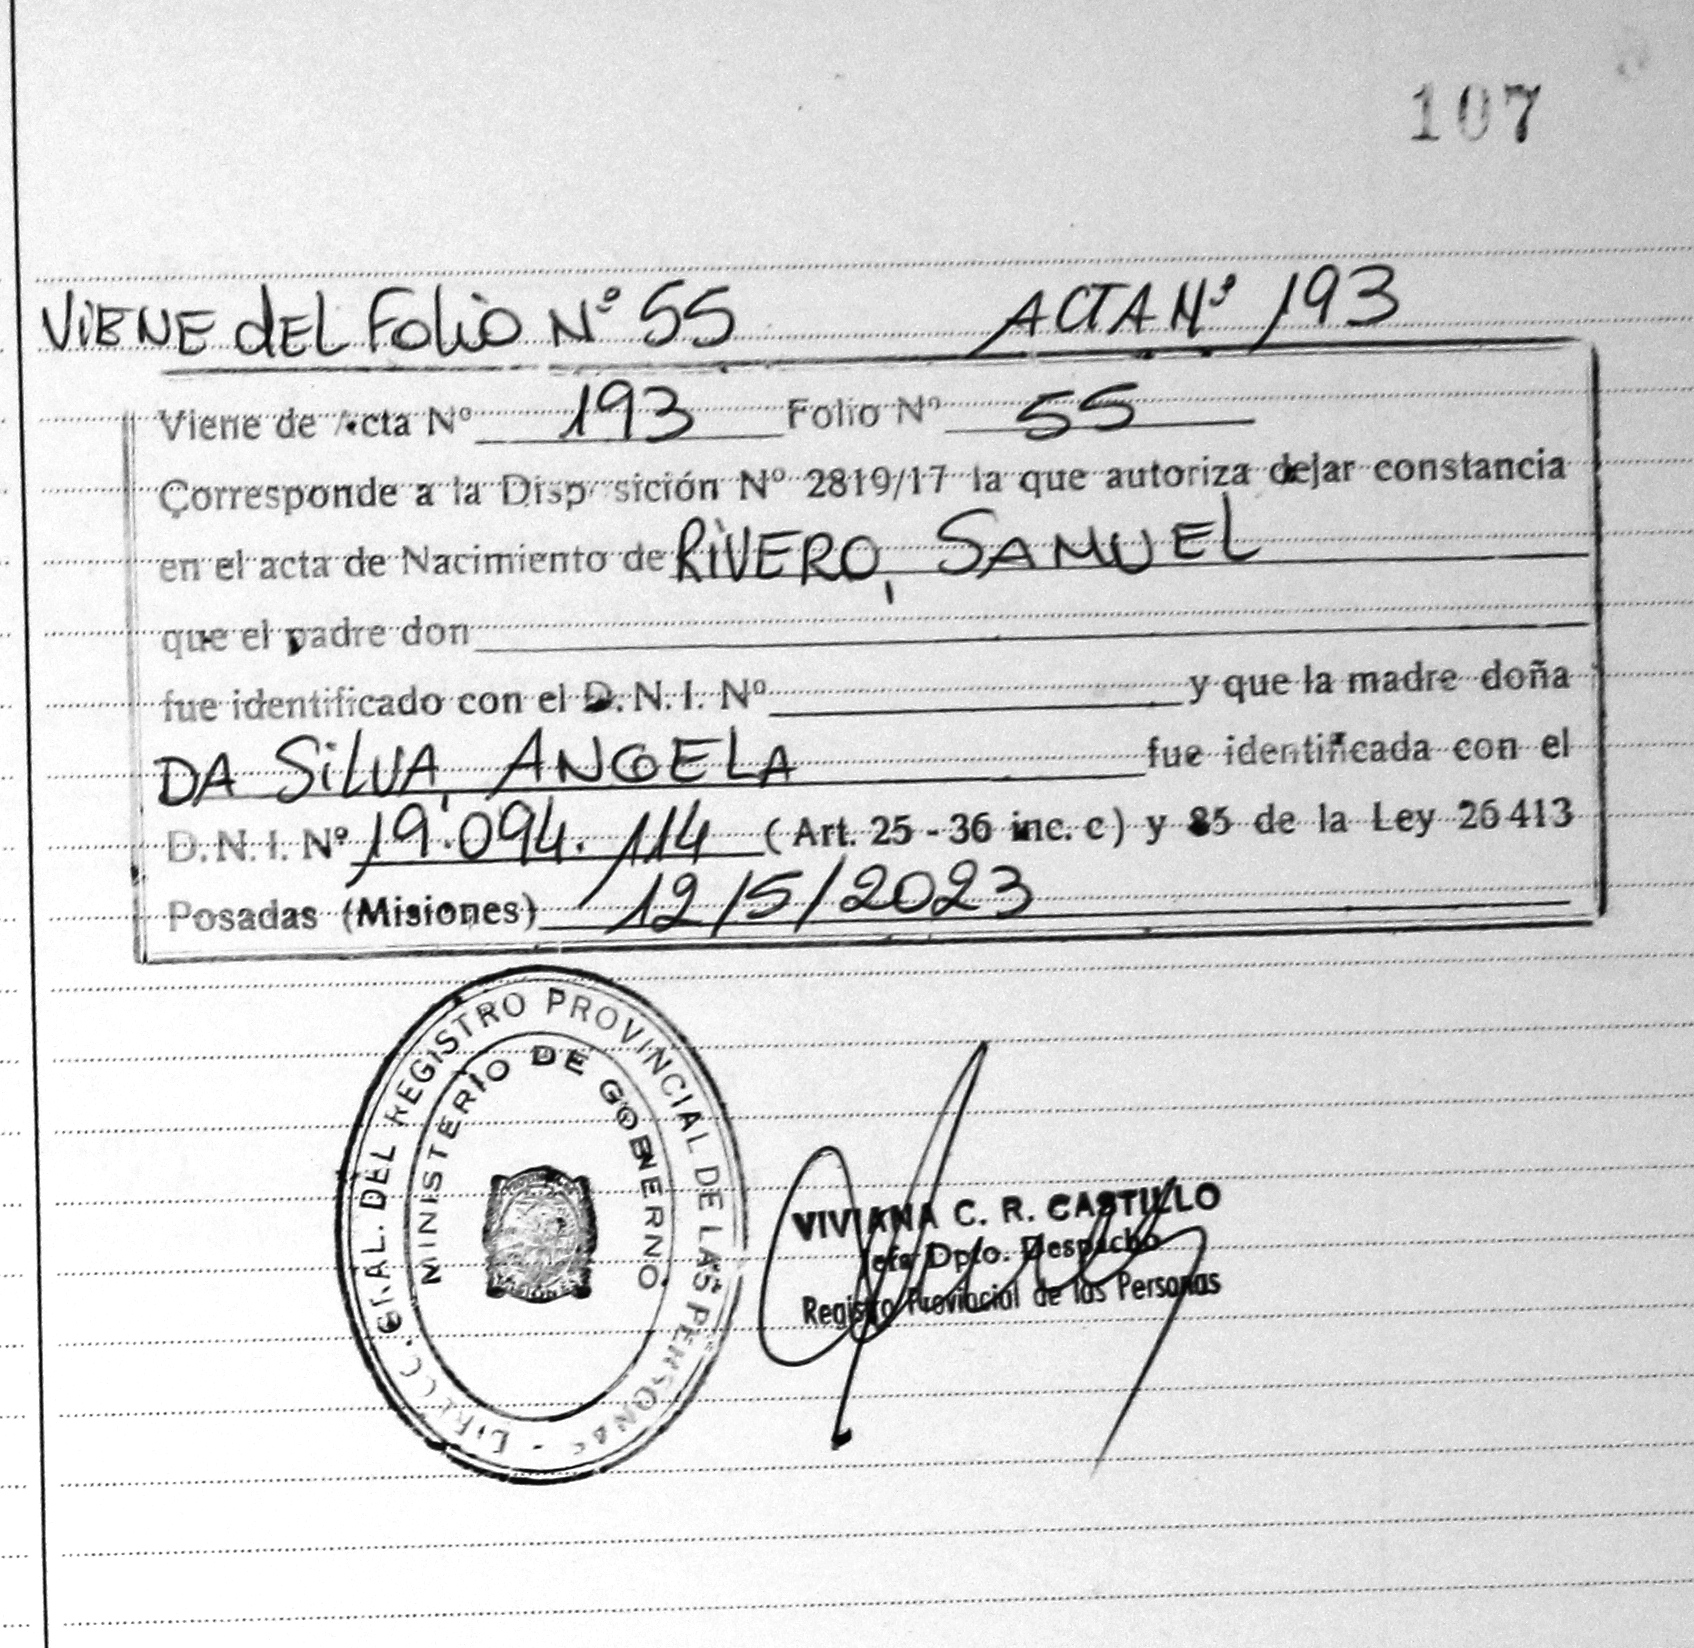 107
VIENE dEL FoLio Nº 55 ACTA Nº 193
Viene de Acta Nº 193 Folio Nº 55
Corresponde a la Disposición Nº 2819/17 la que autoriza dejar constancia
en el acta de Nacimiento de RIVERO, SAMUEL
que el padre don
fue identificado con el D.N.I. Nº y que la madre doña
DA SILVA, ANGELA fue identificada con el
D.N.I. Nº 19.094.114 (Art. 25 - 36 inc. c) y 85 de la Ley 26413
Posadas (Misiones) 12/5/2023
GRAL. DEL REGISTRO PROVINCIAL DE LAS PERSONAS
MINISTERIO DE GOBIERNO
VIVIANA C. R. CASTILLO
Jefa Dpto. Despacho
Registro Provincial de las Personas